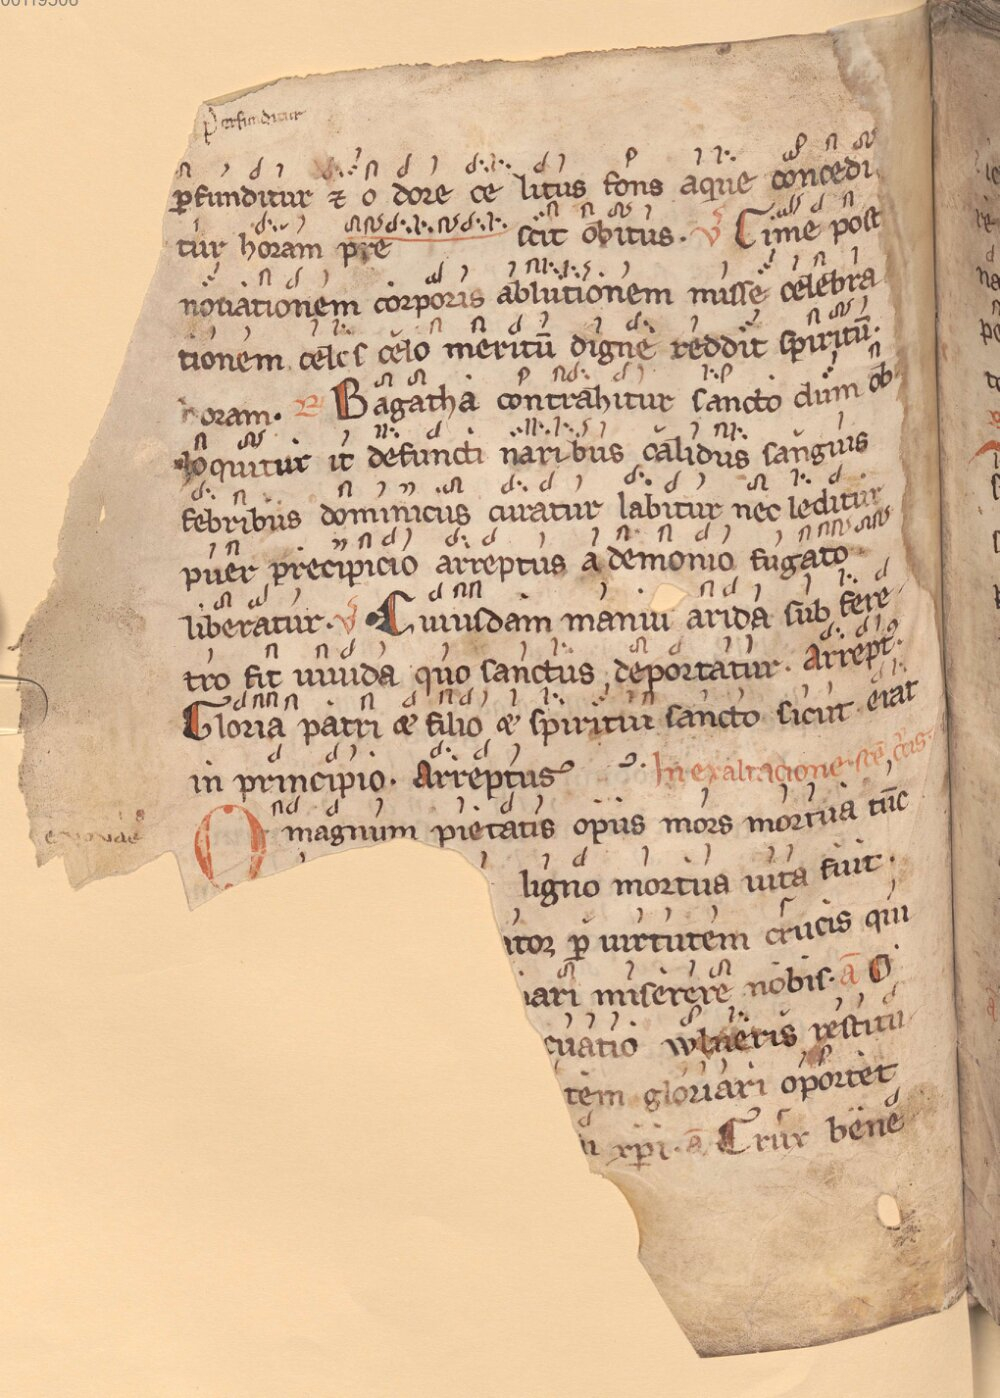 00119506
Perfunditur
ꝑfunditur ⁊ o dore ce litus fons aque concedi
tur horam pre scit obitus. ℣ Cime post
nouationem corporis ablutionem misse celebra
tionem celo meritū digne reddit spiritū.
horam. ℟ Bagatha contrahitur sancto dum ob
loquitur it defuncti naribus calidus sanguis
febribus dominicus curatur labitur nec leditur
puer precipicio arreptus a demonio fugato
liberatur. ℣ Cuiusdam maniu arida sub fere
tro fit uiuida quo sanctus deportatur. Arrept.
Gloria patri & filio & spiritui sancto sicut erat
in principio. Arreptus In exaltacione sc̄e c̄cis
O magnum pietatis opus mors mortua tūc
ligno mortua uita fuit.
ator ꝑ uirtutem crucis qui
iari miserere nobis. ā O
cuatio wlneris restitu
tem gloriari oportet
xp̄i. ā Crux bene